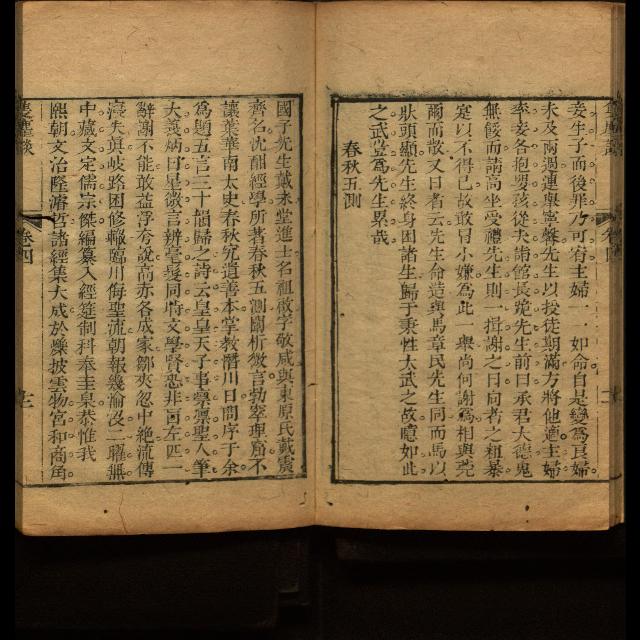 妾生子而後罪乃可宥主婦一一如命自是變為良婦
未及兩週連舉寧馨先生以授徒期滿方將他適主婦
率妾各抱嬰孩從夫詣館長跪先生前曰承君大德鬼
無餒而請高坐受禮先生則一揖謝之曰向者之粗暴
寔以不得已故敢冒小嫌為此一舉尚何謝為相與莞
爾而散又曰者云先生命造與馬章民先生同而馬以
狀頭顯先生終身困諸生歸于秉性太武之故噫如此
之武豈為先生累哉
春秋五測
國子先生戴未堂進士名祖啟字敬咸與東原氏戴震
齊名沈酣經學所著春秋五測闡析微言勃窣理窟不
讓葉華南太史春秋究遺善本掌教潛川日問序于余
為題五言三十韻歸之詩云皇皇天子事學凜聖人筆
大義炳日星微言辨毫髮同時文學賢惡非丘左匹一
辭謝不能敢益浮夸說高赤各成家鄒夾忽中絕流傳
寖失與岐路困修轍臨川侮聖流朝報幾淪沒一曜無
中藏文定儒宗傑編纂入經筵制科奉圭臬恭惟我
熙朝文治隆濬哲諸經集大成於爍披雲物宮和商角
雙塵談 卷四